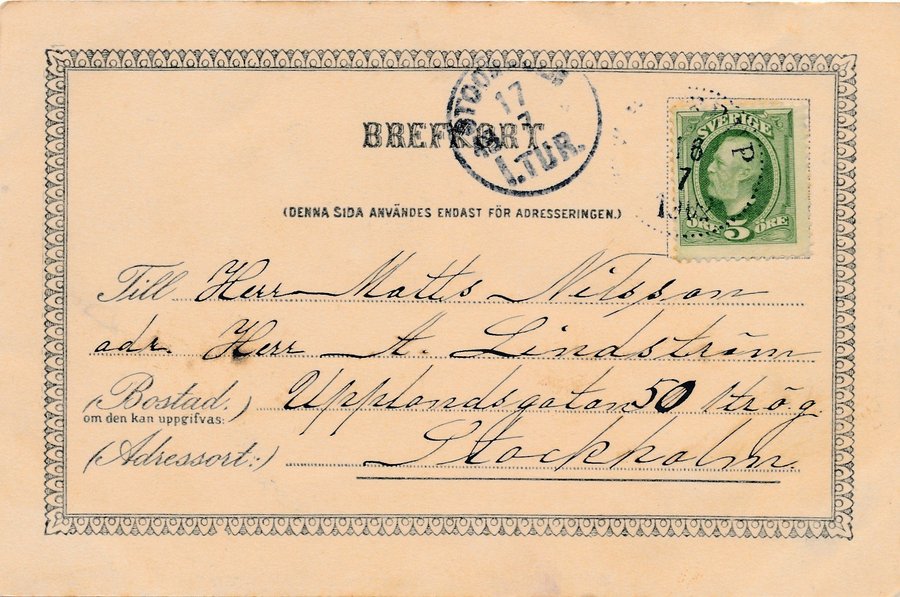 17
7
1.TUR.
BREFKORT.
SVERIGE
P
7
ÖRE 5 ÖRE
(DENNA SIDA ANVÄNDES ENDAST FÖR ADRESSERINGEN.)
Till Herr Matts Nilsson
adr. Herr A. Lindström
(Bostad.) Upplandsgatan 50 2trög.
om den kan uppgifvas:
(Adressort:) Stockholm.